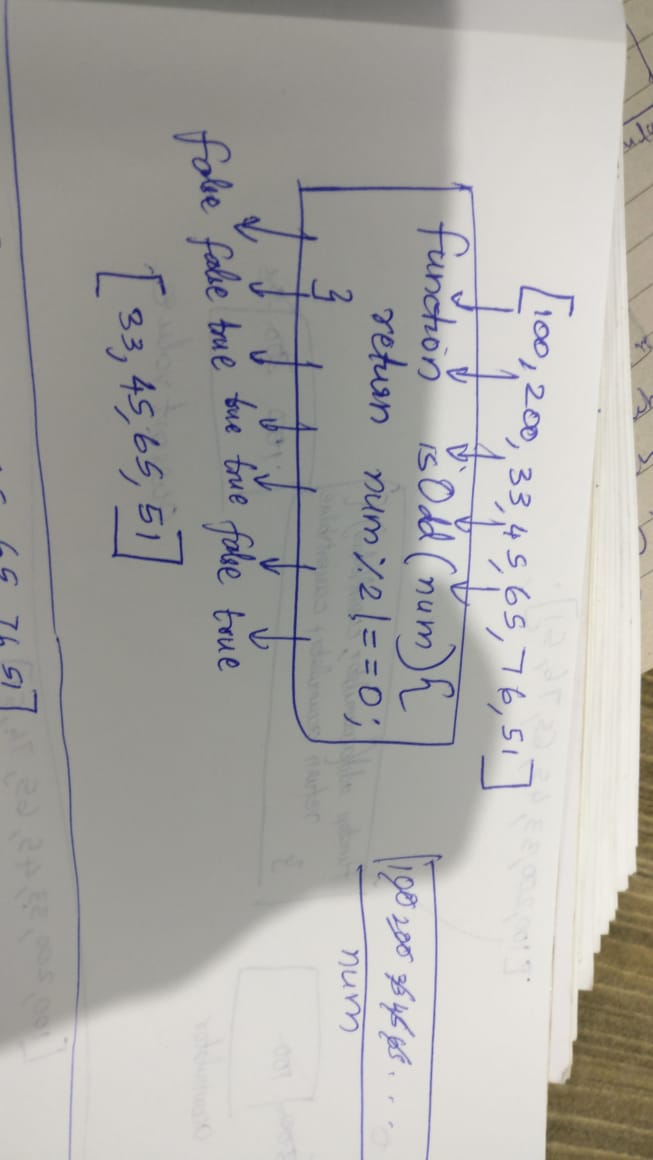 [100, 200, 33, 45, 65, 76, 51]
function isOdd(num){
return num % 2 !== 0;
}
false false true true true false true
[33, 45, 65, 51]
100 200 33 45 65 . . .
num
65 76 51]